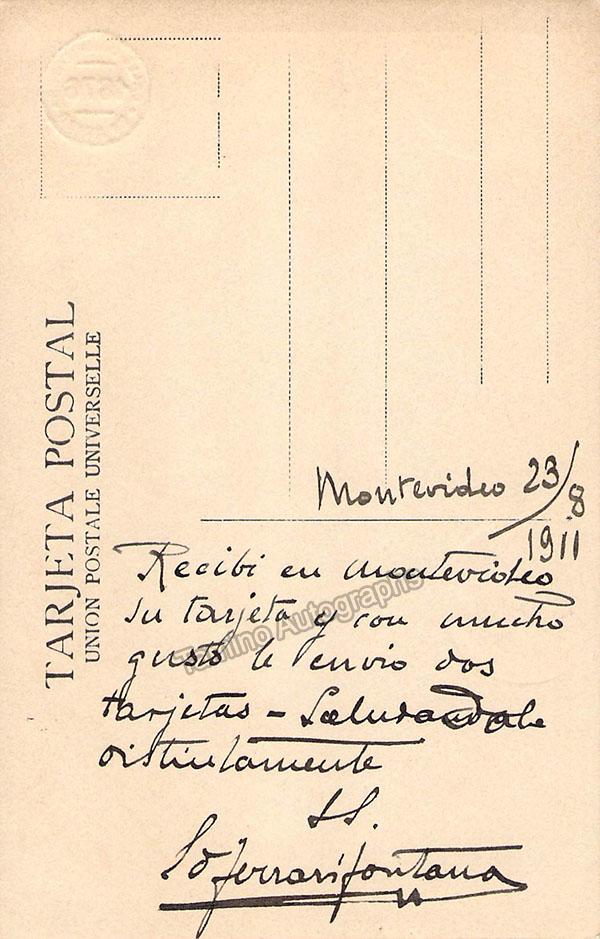 TARJETA POSTAL
UNION POSTALE UNIVERSELLE
Montevideo 23/8
1911
Recibi en montevideo
su tarjeta y con mucho
gusto le envio dos
tarjetas - Saludandole
distintamente
SS.
Ed Ferrari fontana
Tamino Autographs